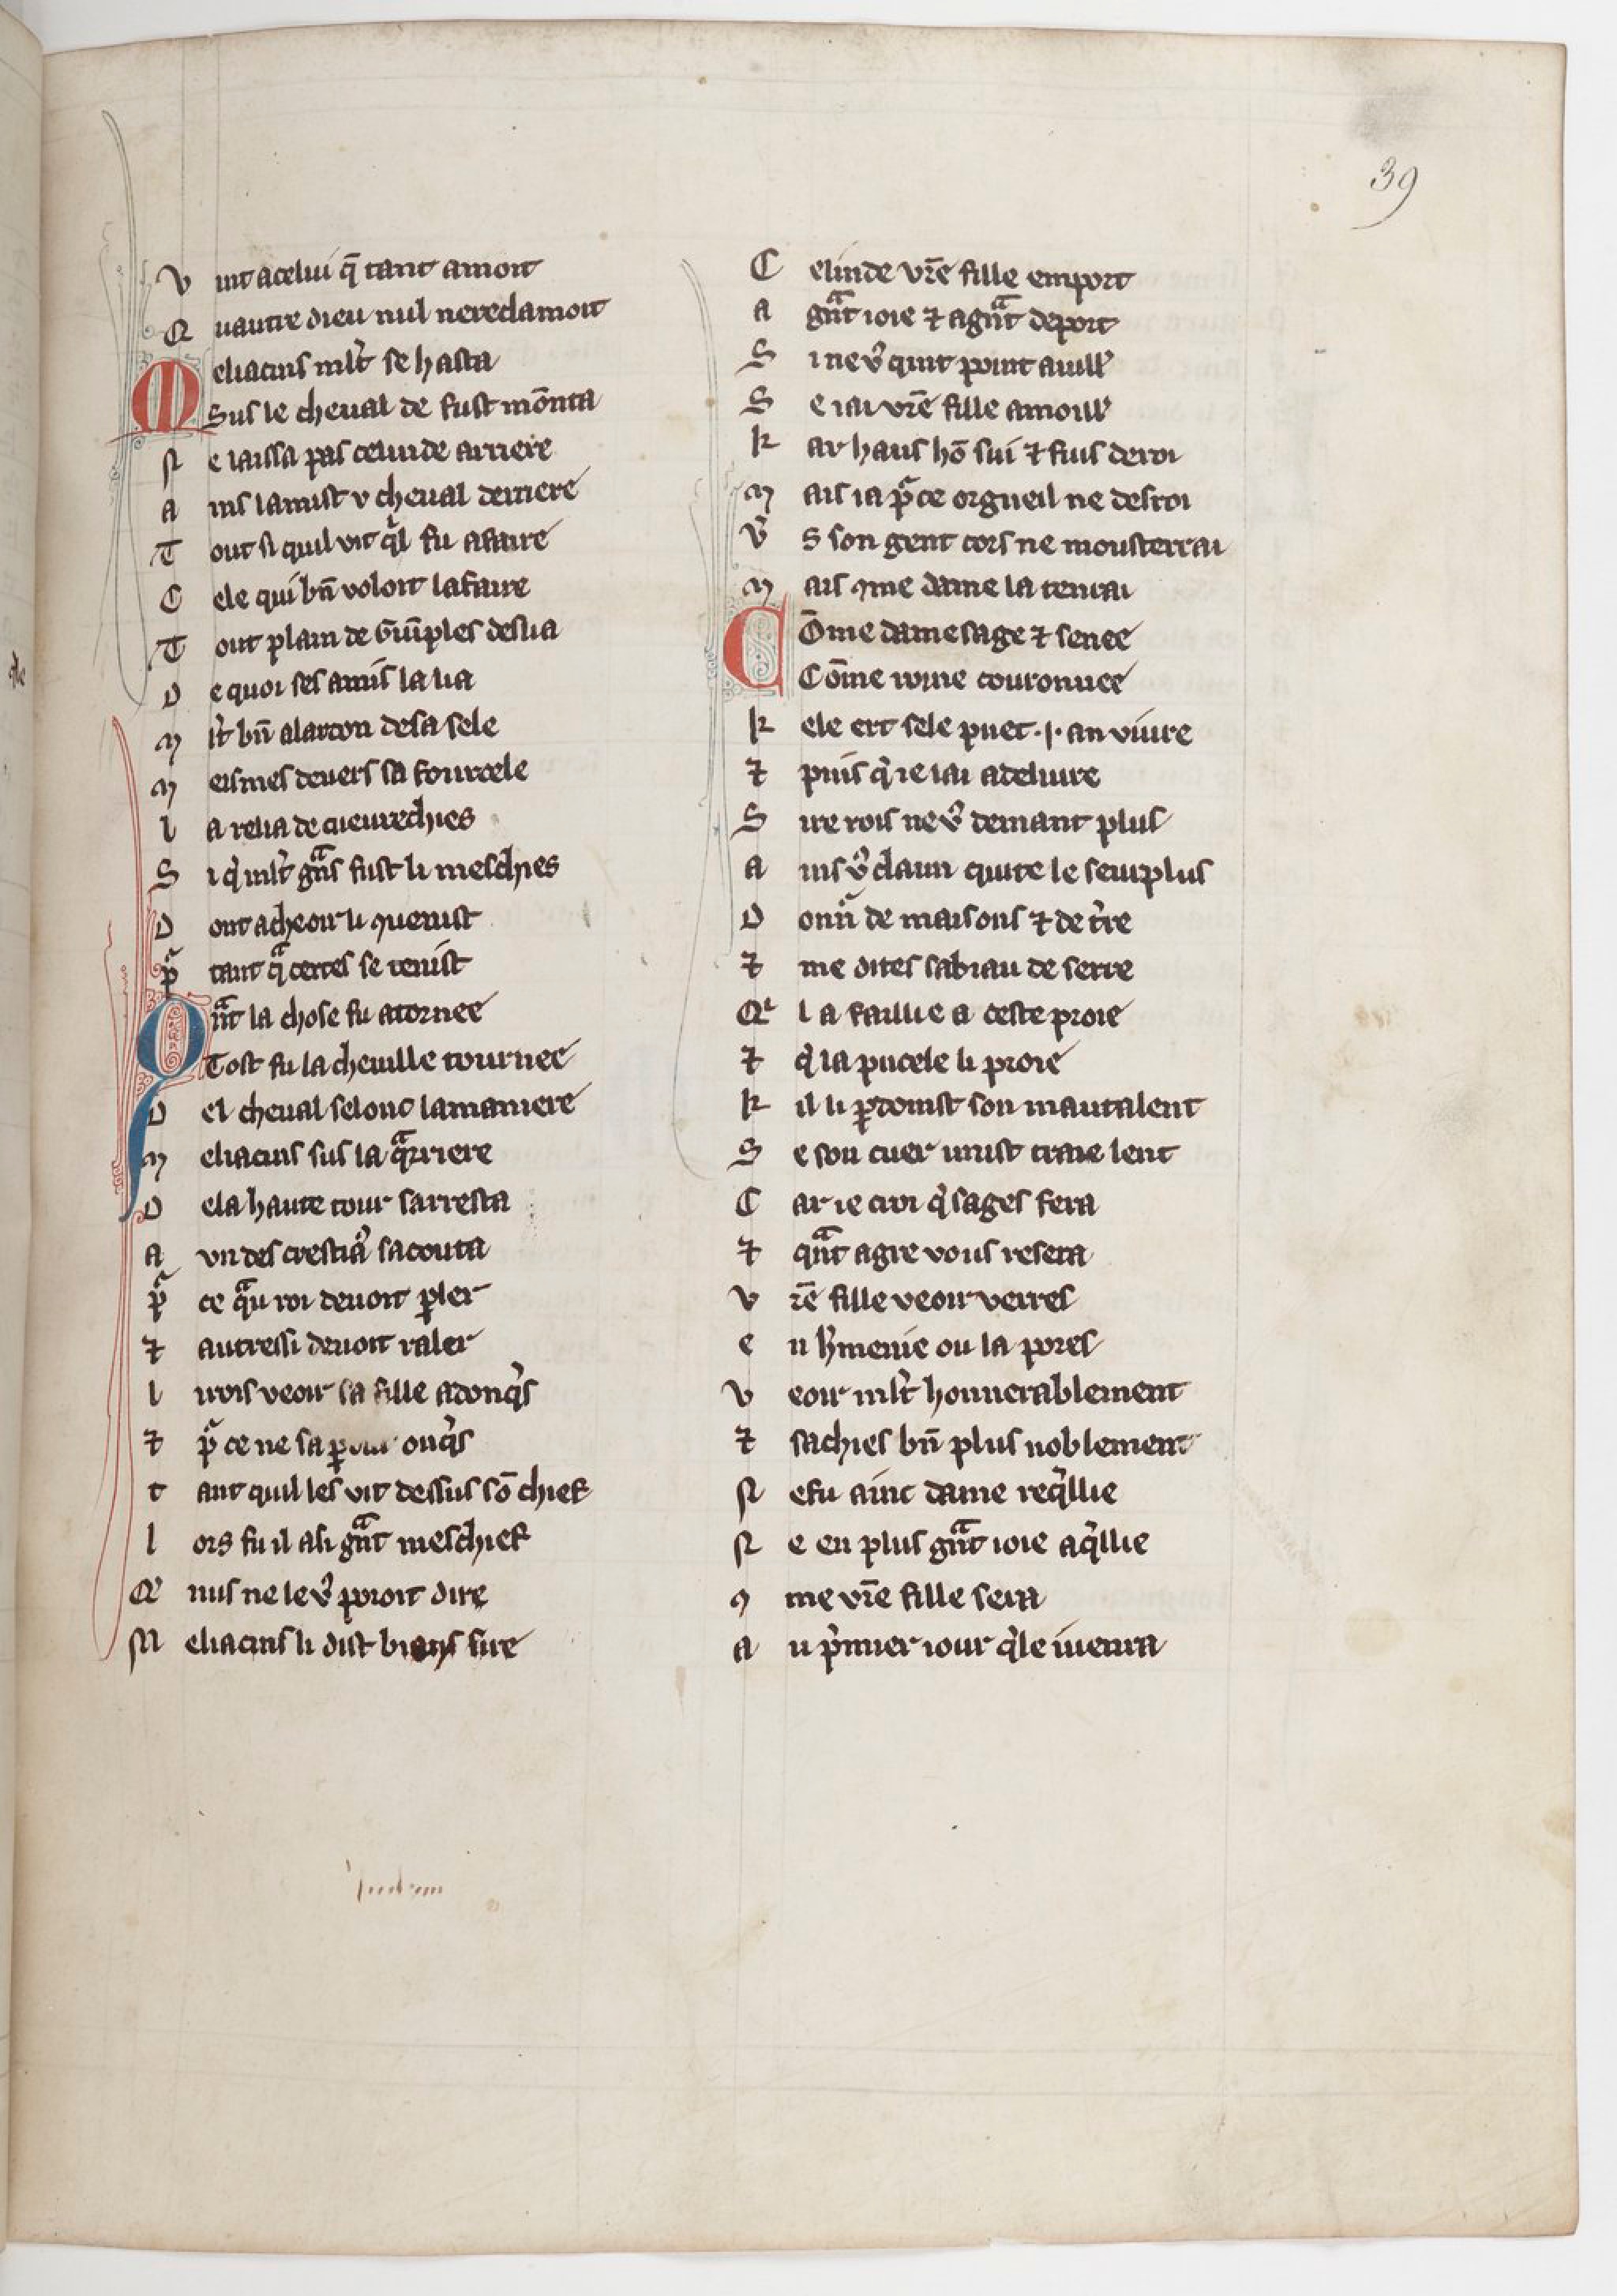 39
V int a celui q̃ tant amoit
Q uautre dieu nul nereclamoit
M eliacins ml't se hasta
Sus le cheual de fust mõnta
N e laissa pas celinde arriere
A ins lamist v cheual derriere
T out si quil vit q̓l fu afaire
C ele qui bñ voloit lafaire
T out plain de guĩples deslia
D e quoi ses amis la lia
M l't bñ alarcon desa sele
M eismes deuers sa fourcele
L a relia de cueurechies
S i q̓ ml't gᵃns fust li meschies
D ont acheoir li ꝯuenist
P ͬ tant qᵃ certes se tenist
Q ᵃnt la chose fu atornee
Tost fu la cheuille tournee
D el cheual selonc lamaniere
M eliacins sus la qᵃrriere
D ela haute tour sarresta
A vn des crestiaˣ sacouta
P ͬ ce qᵃu roi deuoit ꝑler
⁊ autressi deuoit raler
L i rois veoir sa fille adonq̓s
⁊ pͬ ce ne sa ꝑ onq̓s
T ant quil les vit dessus sõ chief
L ors fu il a si gᵃnt meschief
Q' nus ne le vͦ poroit dire
M eliacins li dist sire
C elinde vr̃e fille emport
A gᵃnt ioie ⁊ agᵃnt deport
S i ne vͦ quit point auill'
S e iai vr̃e fille amoill'
K ar haus hõ sui ⁊ fius deroi
M ais ia pͬ ce orgueil ne desroi
Vͦ s son gent cors ne mousterrai
M ais ꝯme dame la tenrai
C Õme dame sage ⁊ senee
Cõme roine couronnee
K ele ert sele puet .j. an viure
⁊ puis q̓ ie iai adeliure
S ire rois ne vͦ demant plus
A ins vͦ claim quite le seurplus
D onnͬ de maisons ⁊ de t're
⁊ me dites sabiau de serre
Qⁱ l a faillie a ceste proie
⁊ q̓ la pucele li proie
K il li ꝑdoinst son mautalent
S e son cuer truist traie lent
C ar ie croi q̓ sages fera
⁊ qᵃnt agre vous resera
V r̃e fille veoir verres
E n h'menie ou la pores
V eoir ml't honnerablement
⁊ sachies bñ plus noblement
N efu ainc dame req̓llie
N e en plus gᵃnt ioie aq̓llie
ꝯ me vr̃e fille sera
A u p̓mier iour q̓le iuenra